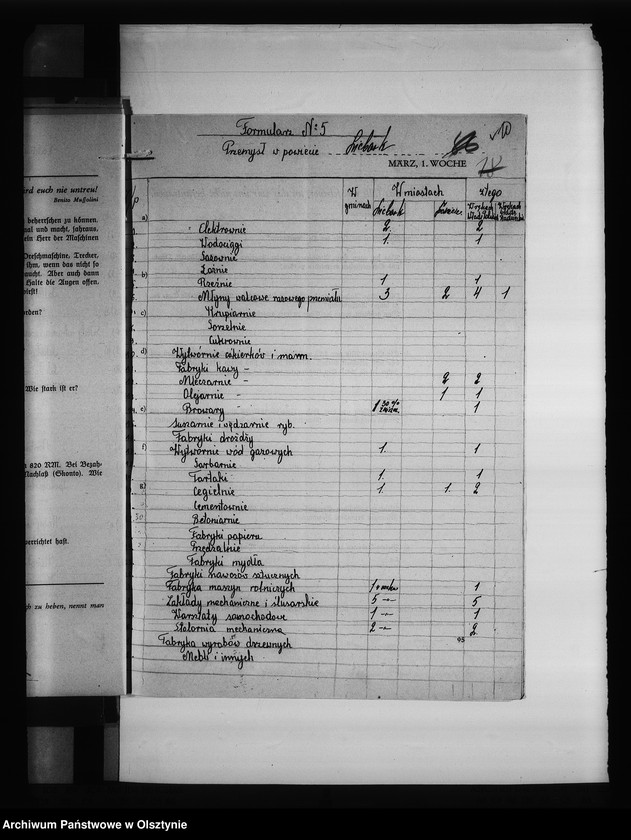 ird euch nie untreu!
Benito Mussolini
beherrschen zu können
al und macht, fahraus,
ein Herr der Maschinen
Dreschmaschine, Trecker,
ihm, wenn das nicht so
aucht. Aber auch dann
Halte die Augen offen,
rden?
Wie stark ist er?
820 RM. Bei Bezah-
Nachlaß (Skonto). Wie
verrichtet hast.
ch zu heben, nennt man
Formularz Nº 5
Przemysł w powiecie Lidzbark
10
MÄRZ, 1. WOCHE
W gminach
W miastach
Z tego
Lidzbark
a)
Elektrownie 2 2
Wodociągi 1. 1
Gazownie
Łaźnie
b)
Rzeźnie 1 1
Młyny walcowe razowego przemiału 3 2 4 1
c)
Krupiarnie
Gorzelnie
Cukrownie
d)
Wytwórnie cukierków i marm.
Fabryki kawy -
Mleczarnie - 2 2
Olejarnie - 1 1
e)
Browary - 1 30% 1
Suszarnie i wędzarnie ryb.
Fabryki drożdży
f)
Wytwórnie wód gazowych 1. 1
Garbarnie
Tartaki 1. 1
g)
Cegielnie 1. 1. 2
Cementownie
30
Betoniarnie
Fabryki papieru
Przędzalnie
Fabryki mydła
Fabryki nawozów sztucznych
Fabryka maszyn rolniczych 1 1
Zakłady mechaniczne i ślusarskie 5 -"- 5
Warsztaty samochodowe 1 -"- 1
Stolarnia mechaniczna 2 -"- 2
93
Fabryka wyrobów drzewnych
Mebli i innych
Archiwum Państwowe w Olsztynie